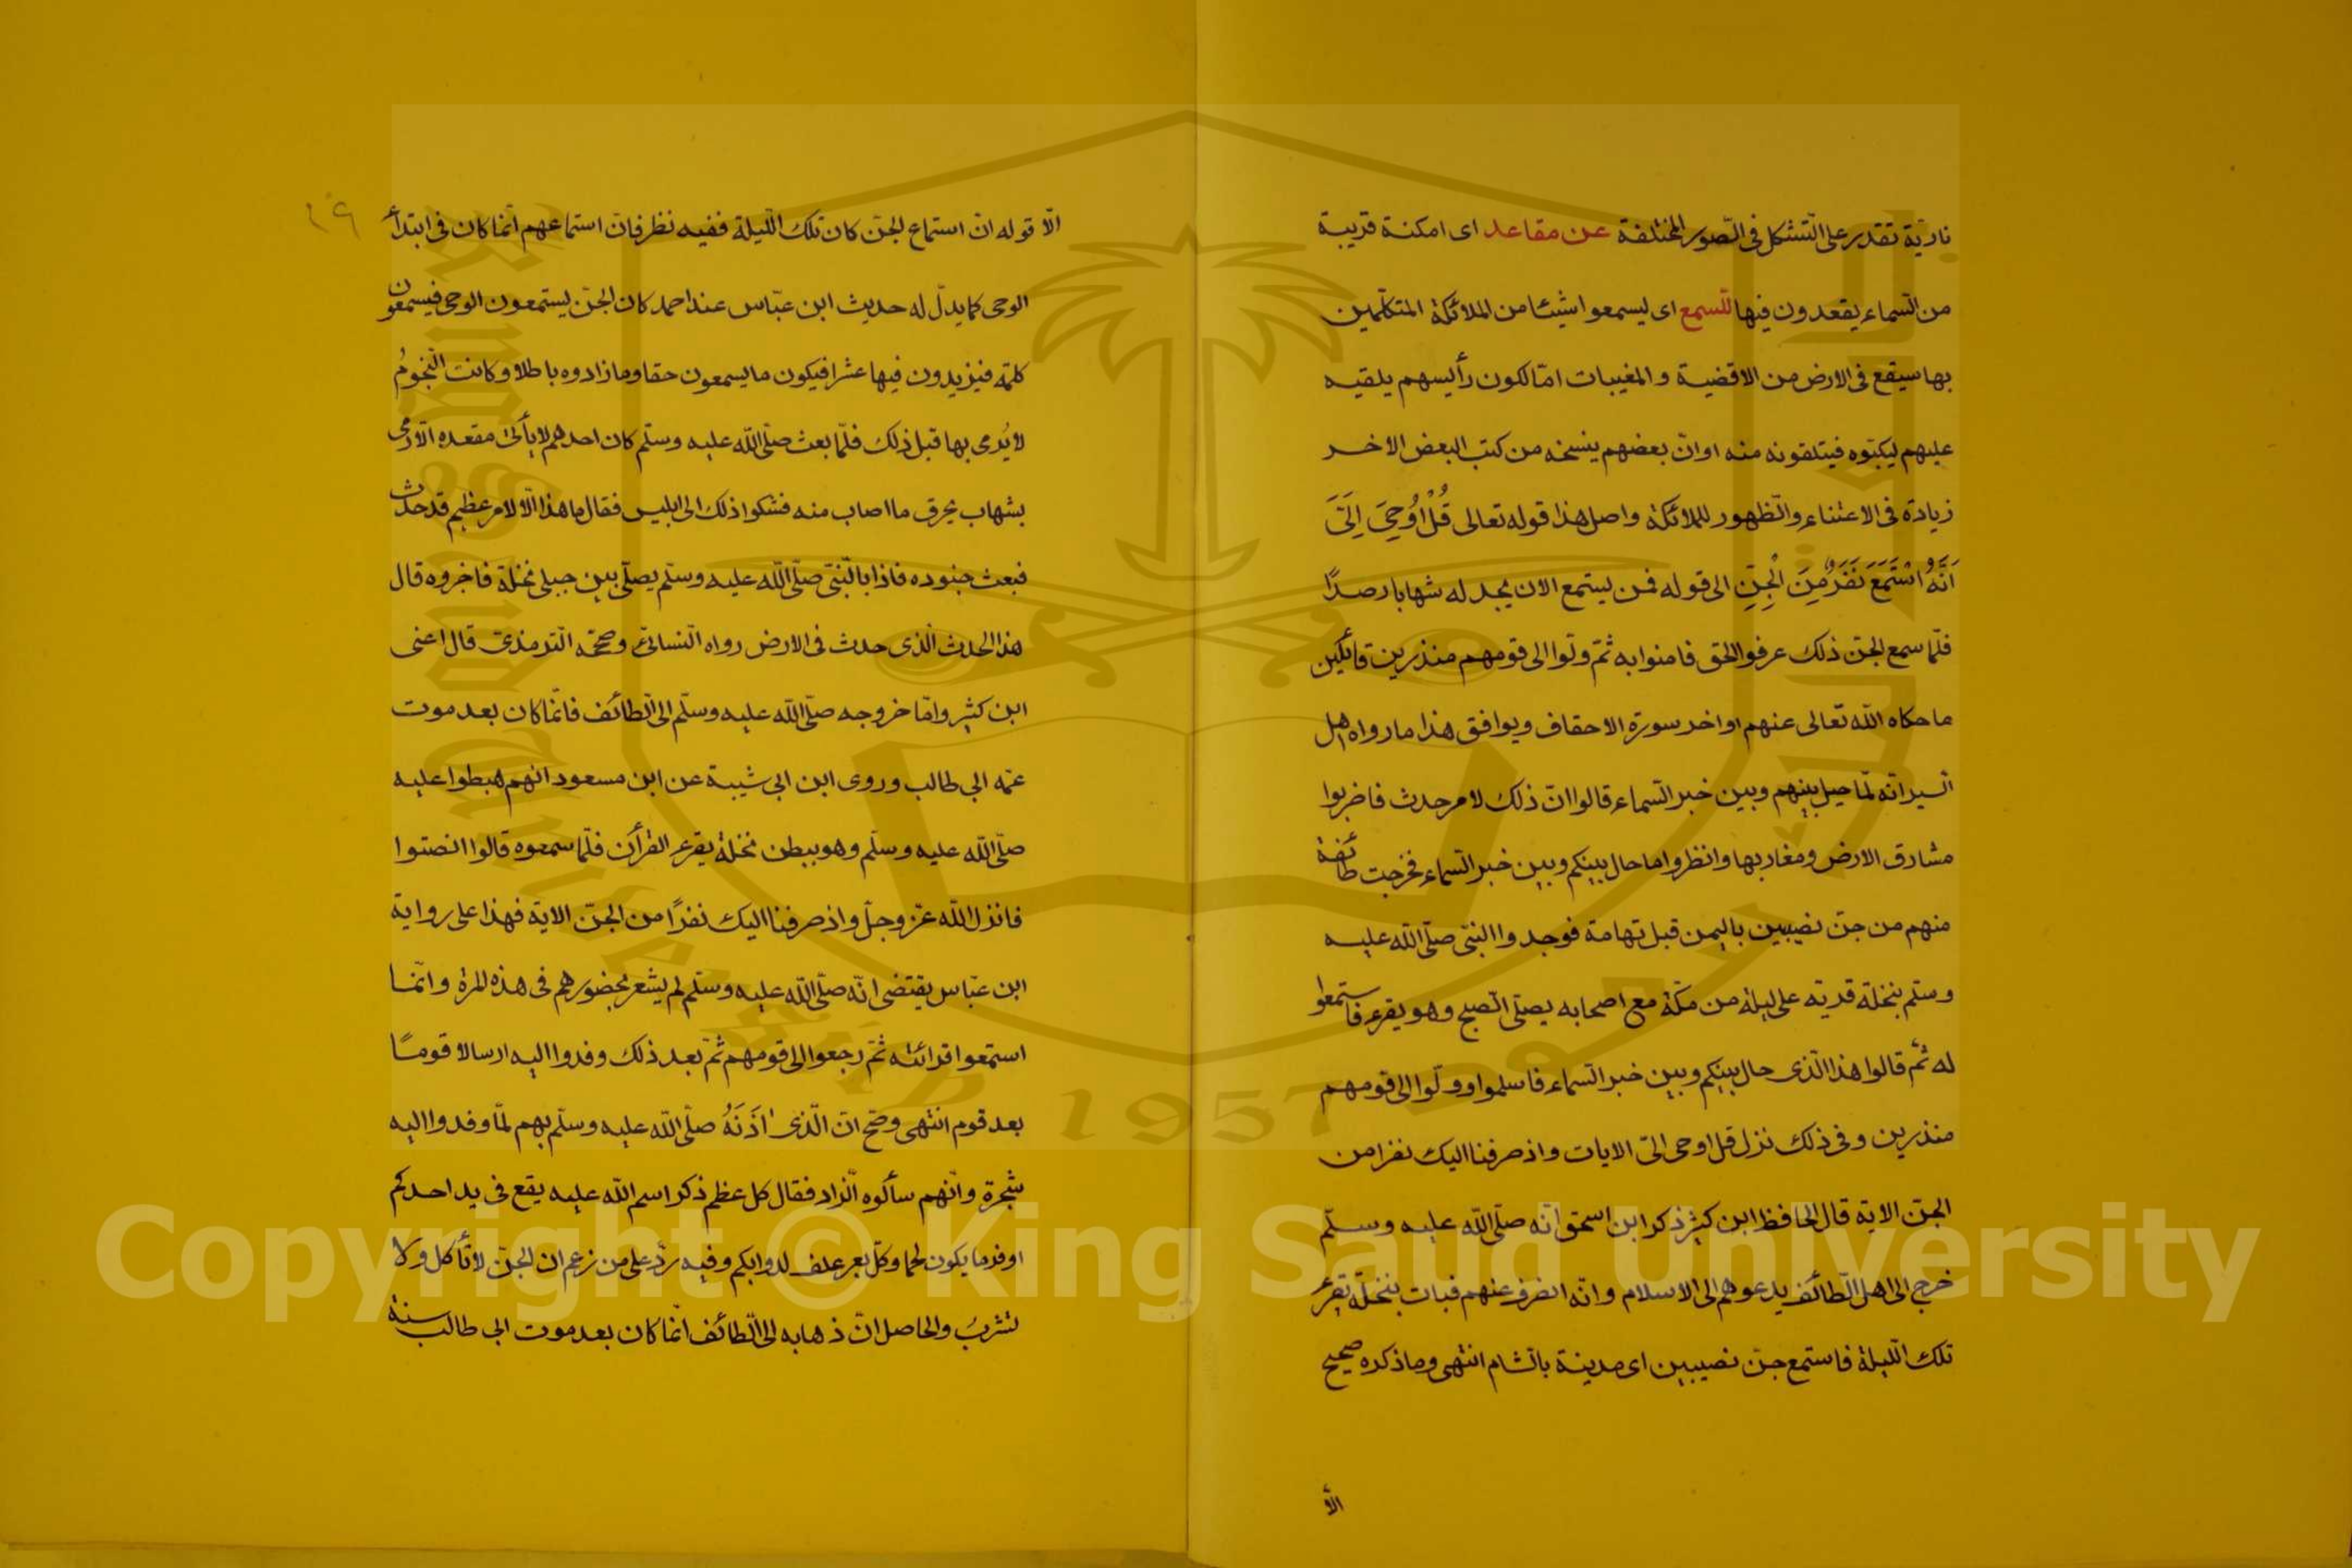 نارية تقدر على التشكل فى الصور المختلفة عن مقاعد اى امكنة قريبة
من السماء يقعدون فيها للسمع اى ليسمعوا شيئا من الملائكة المتكلمين
بها سيقع فى الارض من الاقضية والمغيبات امّا لكون رأيسهم يلقيه
عليهم ليكتبوه فيتلقونه منه او انّ بعضهم ينسخه من كتب البعض الاخر
زيادة فى الاعتناء والظهور للملائكة واصل هذا قوله تعالى قُلْ اُوحِيَ اِلَيَّ
اَنَّهُ اسْتَمَعَ نَفَرٌ مِنَ الْجِنِّ الى قوله فمن يستمع الان يجد له شهابا رصدًا
فلمّا سمع الجنّ ذلك عرفوا الحق فامنوا به ثمّ ولّوا الى قومهم منذرين قائلين
ما حكاه الله تعالى عنهم اواخر سورة الاحقاف ويوافق هذا ما رواه اهل
السير انّه لمّا حيل بينهم وبين خبر السماء قالوا انّ ذلك لامر حدث فاضربوا
مشارق الارض ومغاربها وانظروا ما حال بينكم وبين خبر السماء فخرجت طائفة
منهم من جنّ نصيبين باليمن قبل تهامة فوجدوا النبىّ صلّى الله عليه
وسلّم بنخلة قرية على ليلة من مكّة مع اصحابه يصلّى الصبح وهو يقرء فاستمعوا
له ثمّ قالوا هذا الّذى حال بينكم وبين خبر السماء فاسلموا وولّوا الى قومهم
منذرين وفى ذلك نزل قل اوحى الىّ الايات واذ صرفنا اليك نفرا من
الجنّ الاية قال الحافظ ابن كثير ذكر ابن اسحق انّه صلّى الله عليه وسلّم
خرج الى اهل الطائف يدعوهم الى الاسلام وانّه انصرف عنهم فبات بنخلة يقرء
تلك الليلة فاستمع جنّ نصيبين اى مدينة بالشام انتهى وما ذكره صحيح
الّا
٢٩
الّا قوله انّ استماع الجنّ كان تلك الليلة ففيه نظر فانّ استماعهم انّما كان فى ابتدأ
الوحى كما يدلّ له حديث ابن عبّاس عند احمد كان الجنّ يستمعون الوحى فيسمعون
كلمة فيزيدون فيها عشرا فيكون ما يسمعون حقا وما زادوه باطلا وكانت النجومُ
لا يُرمى بها قبل ذلك فلمّا بعث صلّى الله عليه وسلّم كان احدهم لا يأتى مقعده الّا رمى
بشهاب يحرق ما اصاب منه فشكوا ذلك الى ابليس فقال ما هذا الّا لامر عظيم قد حدث
فبعث جنوده فاذا بالنّبىّ صلّى الله عليه وسلّم يصلّى بين جبلى نخلة فاخبروه قال
هذا الحدث الّذى حدث فى الارض رواه النسائىّ وصحّحه الترمذىّ قال اعنى
ابن كثير وامّا خروجه صلّى الله عليه وسلّم الى الطائف فانّما كان بعد موت
عمّه ابى طالب وروى ابن ابى شيبة عن ابن مسعود انهم هبطوا عليه
صلّى الله عليه وسلّم وهو ببطن نخلة يقرء القرأن فلمّا سمعوه قالوا انصتوا
فانزل الله عزّ وجلّ واذ صرفنا اليك نفرًا من الجنّ الاية فهذا على رواية
ابن عبّاس يقتضى انّه صلّى الله عليه وسلّم لم يشعر بحضورهم فى هذه المرة وانّما
استمعوا قرائته ثمّ رجعوا الى قومهم ثمّ بعد ذلك وفدوا اليه ارسالا قومًا
بعد قوم انتهى وصحّ انّ الّذى اٰذَنَهُ صلّى الله عليه وسلّم بهم لمّا وفدوا اليه
شجرة وانّهم سألوه الزاد فقال كل عظم ذكر اسم الله عليه يقع فى يد احدكم
اوفر ما يكون لحما وكلّ بعر علف لدوابكم وفيه ردّ على من زعم ان الجنّ لا تأكل ولا
تشربُ والحاصل انّ ذهابه الى الطائف انّما كان بعد موت ابى طالب سنة
King Saud University
1957
Copyright © King Saud University